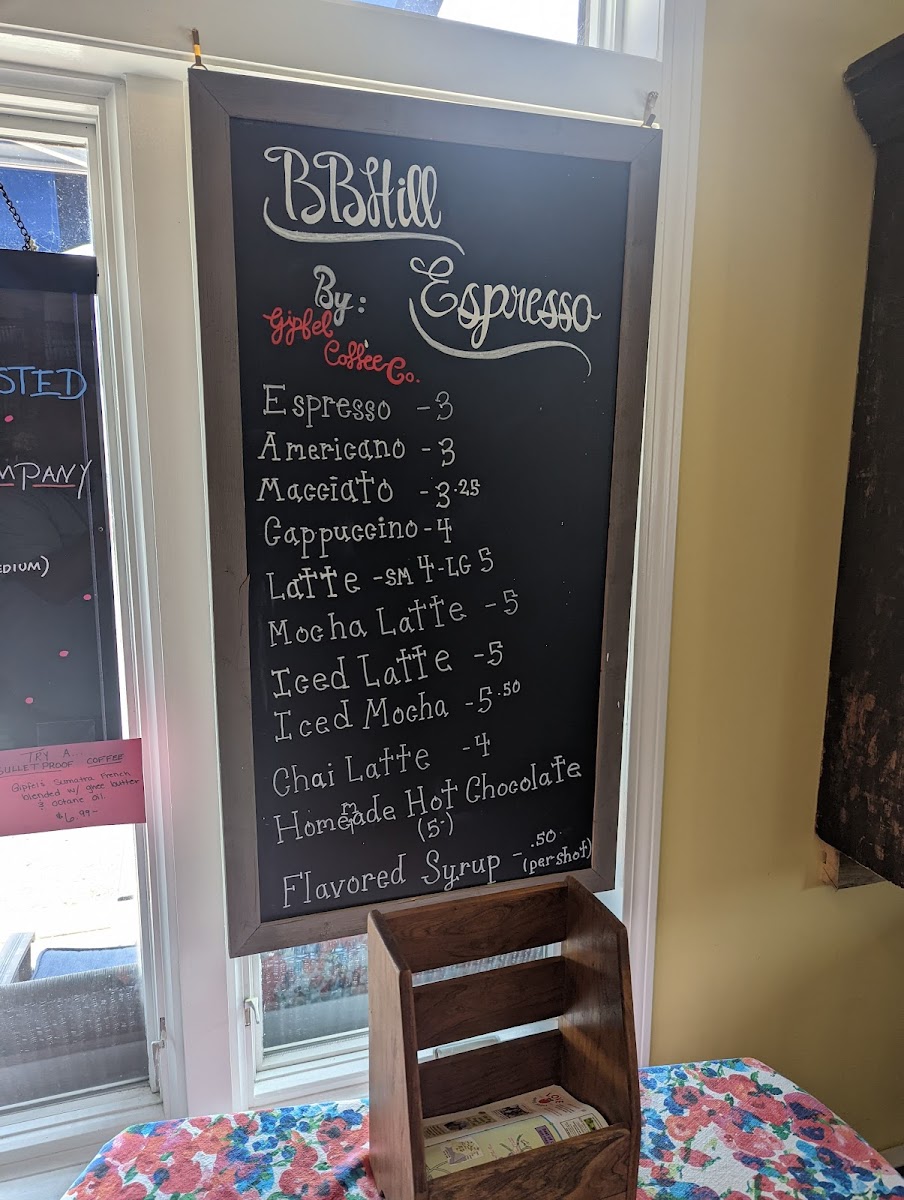 BBHill
Espresso
By:
Gipfel
Coffee Co.
Espresso - 3
Americano - 3
Macciato - 3.25
Cappuccino - 4
Latte - SM 4 - LG 5
Mocha Latte - 5
Iced Latte - 5
Iced Mocha - 5.50
Chai Latte - 4
Homemade Hot Chocolate
(5.)
Flavored Syrup - .50
(per shot)
STED
MPANY
EDIUM)
TRY A
BULLETPROOF COFFEE
Gipfel's Sumatra French
blended w/ ghee butter
& octane oil.
$6.99-